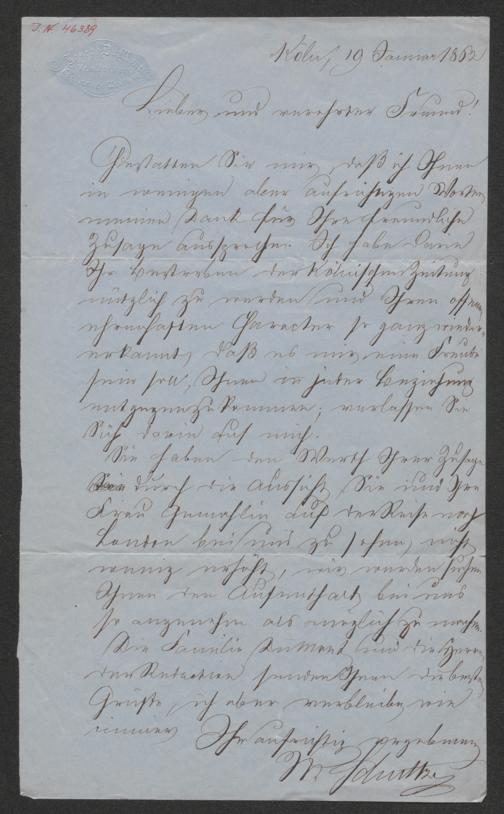 J. N. 46389
Köln, 19 Januar 1862
Lieber und verehrter Freund!
Gestatten Sie mir, daß ich Ihnen
in wenigen aber aufrichtigen Worten
meinen Dank für Ihre freundliche
Zusage ausspreche. Ich habe darin
Ihr Bestreben der Kölnischen Zeitung
nützlich zu werden und Ihren offenen,
ehrenhaften Character so ganz wieder-
erkannt, daß es mir eine Freude
sein soll, Ihnen in jeder Beziehung
entgegenzukommen; verlassen Sie
Sich darin auf mich.
Sie haben den Werth Ihrer Zusage
durch die Aussicht, Sie und Ihre
Frau Gemahlin auf der Reise nach
London bei uns zu sehen, nicht
wenig erhöht, wir werden suchen
Ihnen den Aufenthalt bei uns
so angenehm als möglich zu machen.
Die Familie DuMont und die Herren
der Redaction senden Ihnen die besten
Grüße, ich aber verbleibe wie
immer
Ihr aufrichtig ergebener